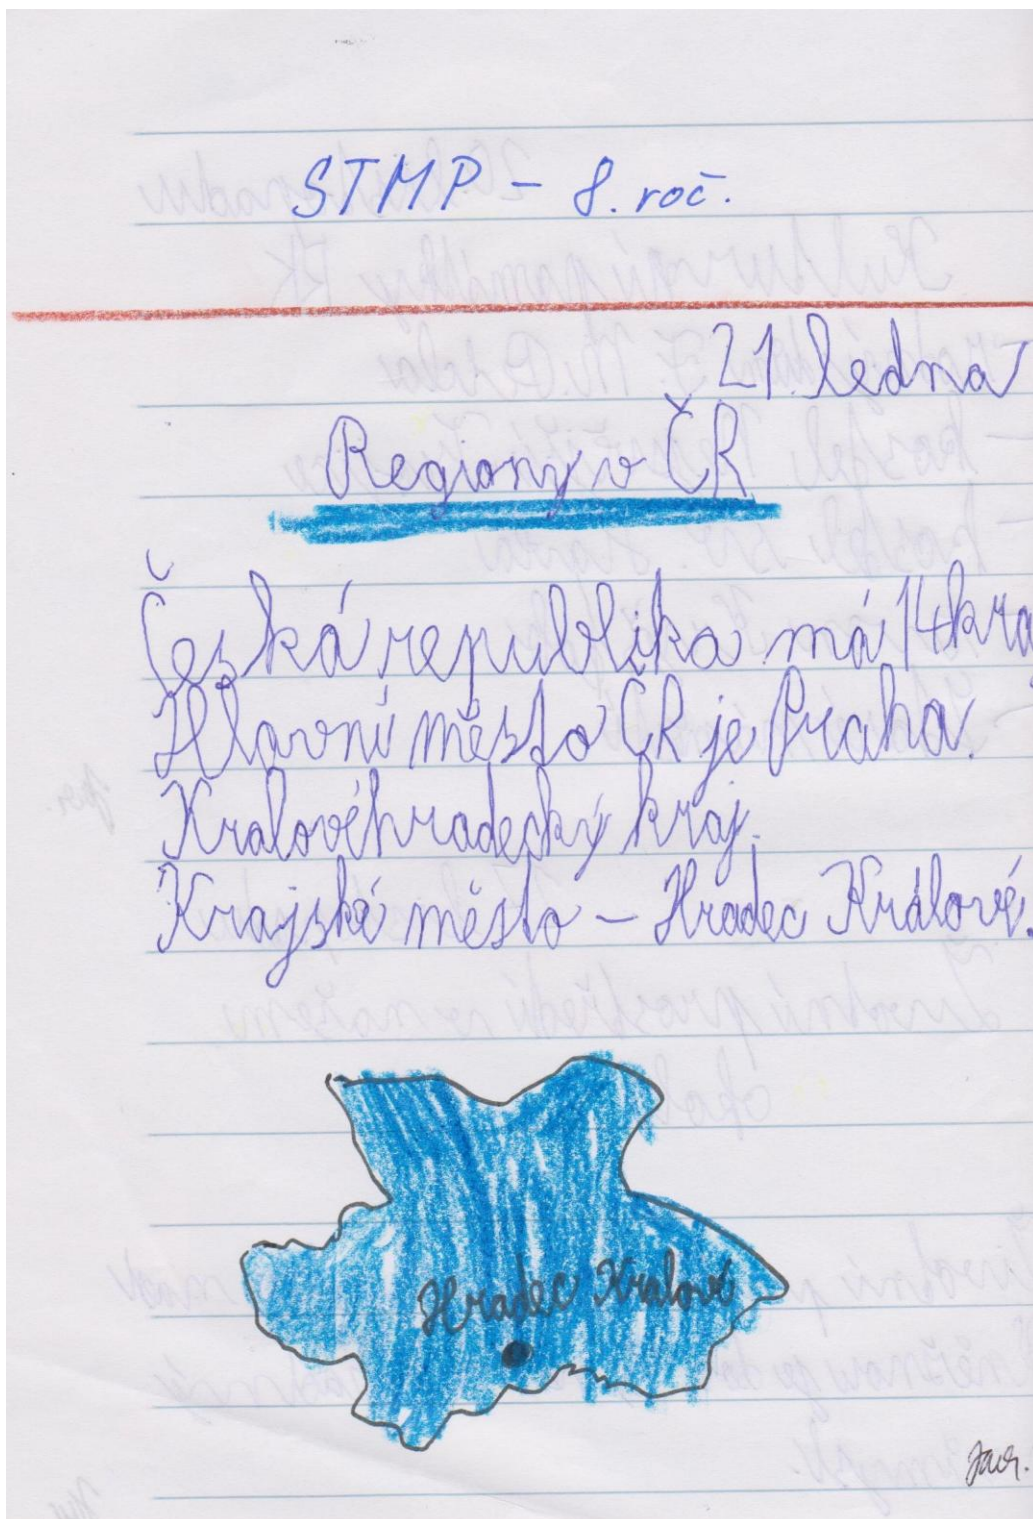 STMP - 8. roč.
21. ledna
Regiony v ČR
Česká republika má 14 kra
Hlavní město ČR je Praha.
Kralovéhradecký kraj.
Krajské město - Hradec Králové.
Hradec Kralové